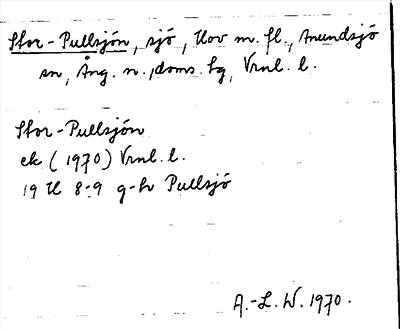 Stor-Pullsjön, sjö, Hov m. fl., Anundsjö
sn, Ång. n., doms. hg, Vrnl. l.
Stor-Pullsjön
ek (1970) Vrnl. l.
19 H 8-9 g-h Pullsjö
A.-L. W. 1970.